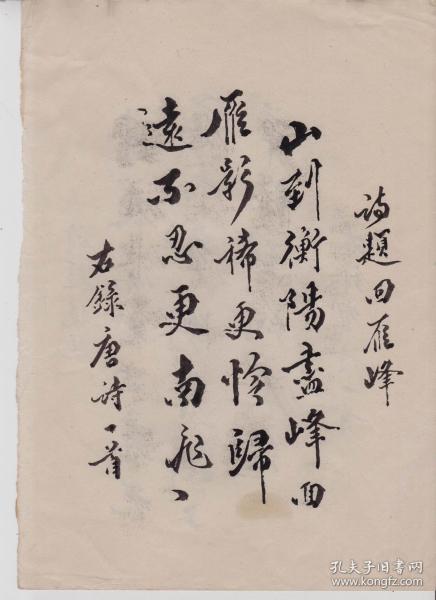 詩題回雁峰
山到衡陽盡峰回
雁影稀更憐歸
遠不忍更南飛
右錄唐詩一首
孔夫子旧书网
www.kongfz.com